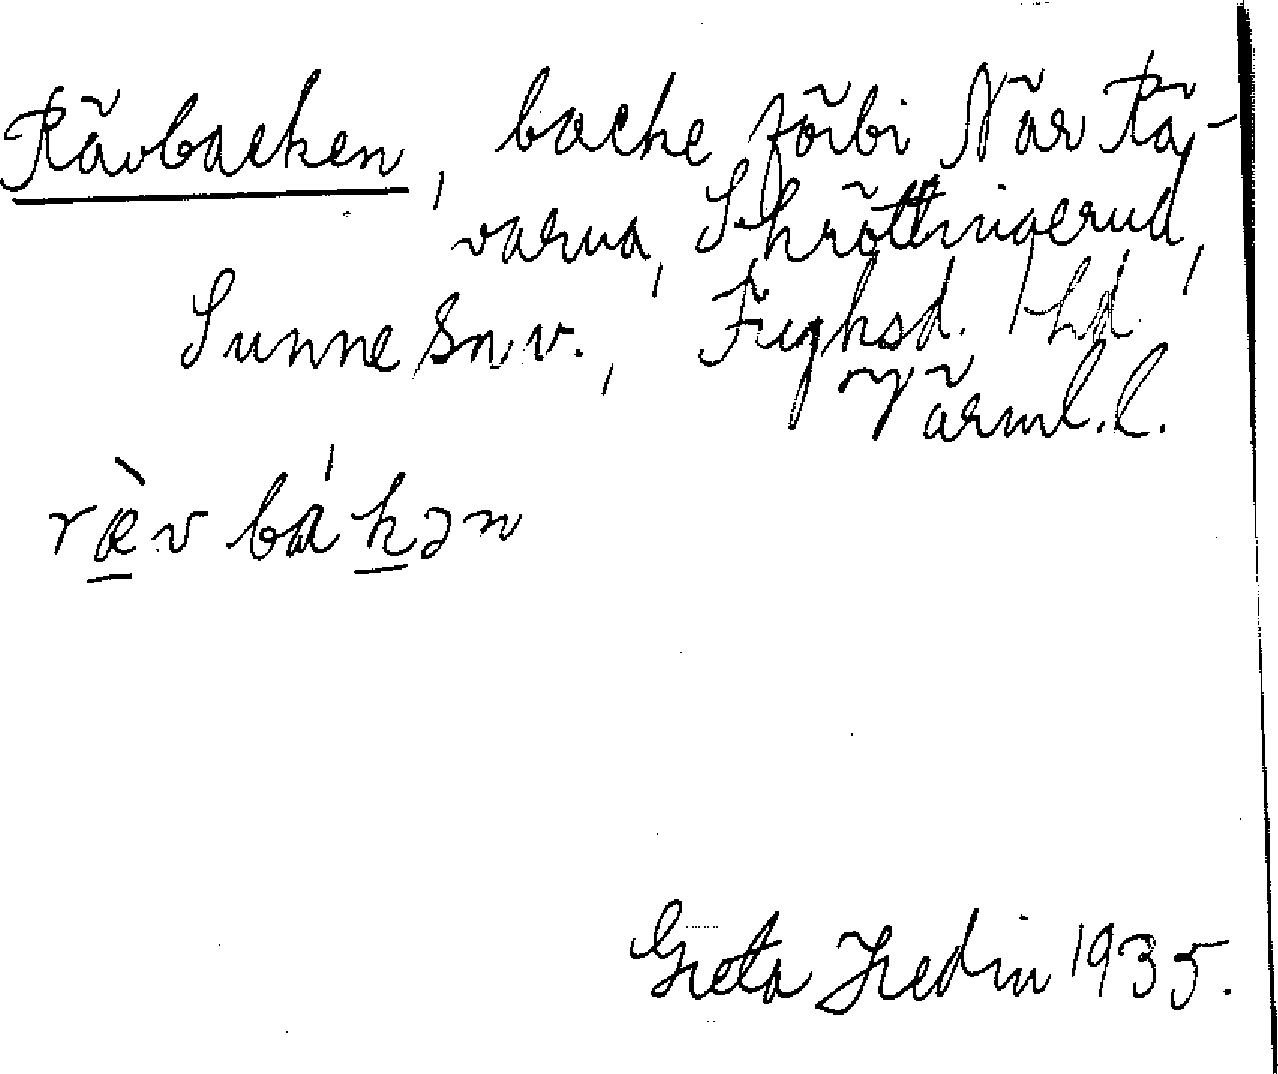 Rävbacken, backe förbi När Rä-
varna, Skröttnigerud,
Sunne sn v., Fryksd. hd.
Värml. l.
ræ̀v bákən
Greta Hedin 1935.